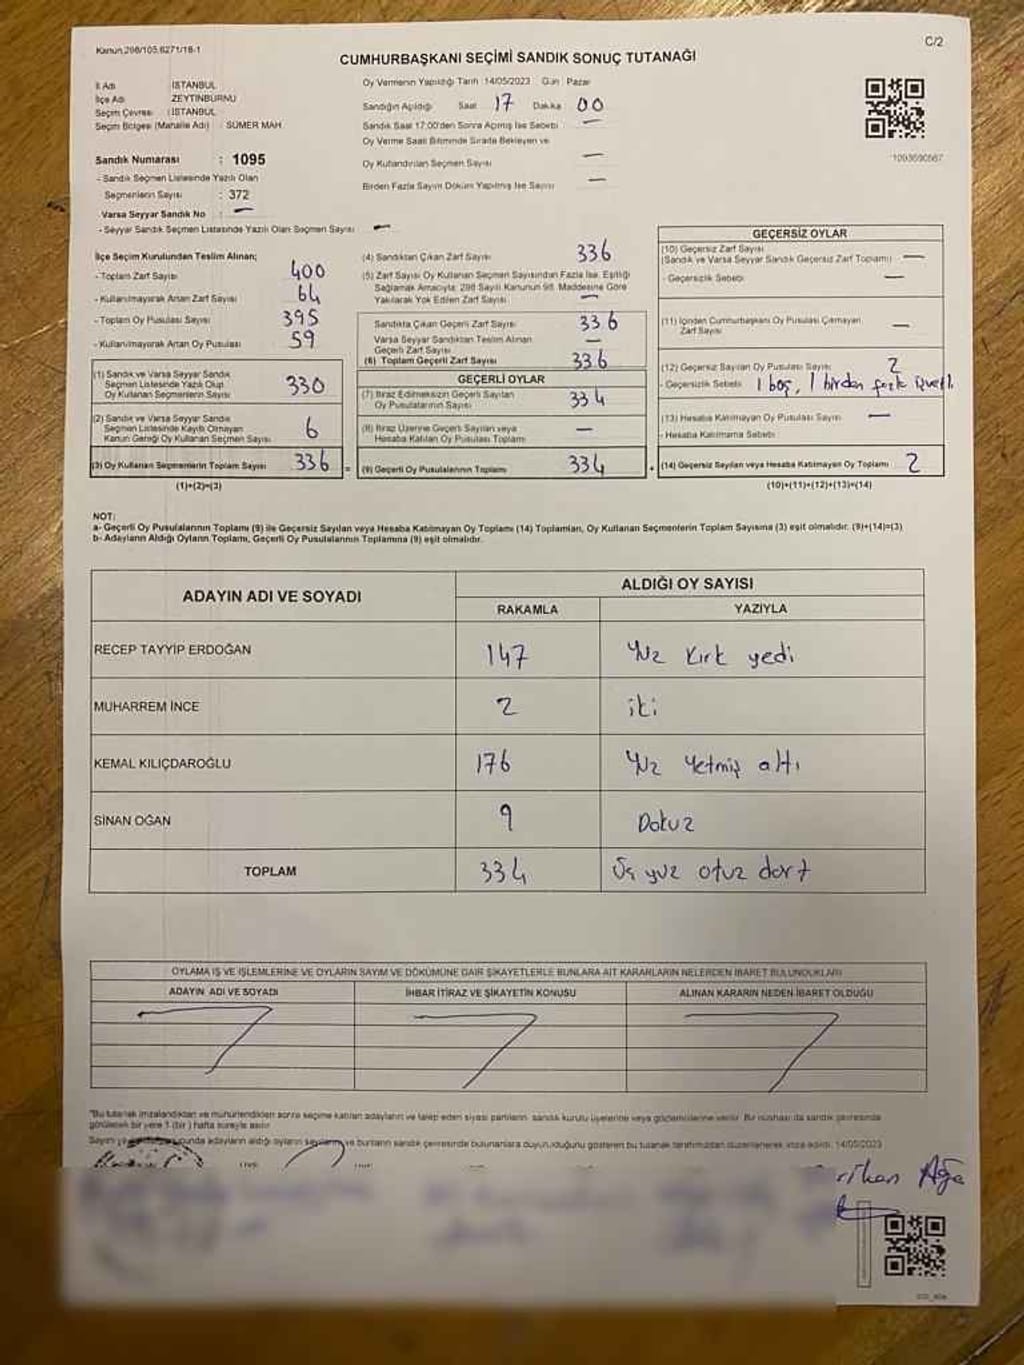 Kanun:298/105,6271/18-1
C/2
CUMHURBAŞKANI SEÇİMİ SANDIK SONUÇ TUTANAĞI
İl Adı : İSTANBUL
İlçe Adı : ZEYTİNBURNU
Seçim Çevresi : İSTANBUL
Seçim Bölgesi (Mahalle Adı) : SÜMER MAH.
Sandık Numarası : 1095
- Sandık Seçmen Listesinde Yazılı Olan
Seçmenlerin Sayısı : 372
- Varsa Seyyar Sandık No : —
- Seyyar Sandık Seçmen Listesinde Yazılı Olan Seçmen Sayısı —
Oy Vermenin Yapıldığı Tarih :14/05/2023 Gün : Pazar
Sandığın Açıldığı Saat 17 Dakika 00
Sandık Saat 17:00'den Sonra Açılmış İse Sebebi —
Oy Verme Saati Bitiminde Sırada Bekleyen ve
Oy Kullandırılan Seçmen Sayısı —
Birden Fazla Sayım Döküm Yapılmış İse Sayısı —
1093690567
İlçe Seçim Kurulundan Teslim Alınan;
- Toplam Zarf Sayısı 400
- Kullanılmayarak Artan Zarf Sayısı 64
- Toplam Oy Pusulası Sayısı 395
- Kullanılmayarak Artan Oy Pusulası 59
(1) Sandık ve Varsa Seyyar Sandık
Seçmen Listesinde Yazılı Olup
Oy Kullanan Seçmenlerin Sayısı 330
(2) Sandık ve Varsa Seyyar Sandık
Seçmen Listesinde Kayıtlı Olmayan
Kanun Gereği Oy Kullanan Seçmen Sayısı 6
(3) Oy Kullanan Seçmenlerin Toplam Sayısı 336 =
(1)+(2)=(3)
(4) Sandıktan Çıkan Zarf Sayısı 336
(5) Zarf Sayısı Oy Kullanan Seçmen Sayısından Fazla İse, Eşitliği
Sağlamak Amacıyla; 298 Sayılı Kanunun 98. Maddesine Göre
Yakılarak Yok Edilen Zarf Sayısı —
Sandıkta Çıkan Geçerli Zarf Sayısı 336
Varsa Seyyar Sandıktan Teslim Alınan
Geçerli Zarf Sayısı —
(6) Toplam Geçerli Zarf Sayısı 336
GEÇERLİ OYLAR
(7) İtiraz Edilmeksizin Geçerli Sayılan
Oy Pusulalarının Sayısı 334
(8) İtiraz Üzerine Geçerli Sayılan veya
Hesaba Katılan Oy Pusulası Toplamı —
(9) Geçerli Oy Pusulalarının Toplamı 334 +
GEÇERSİZ OYLAR
(10) Geçersiz Zarf Sayısı
(Sandık ve Varsa Seyyar Sandık Geçersiz Zarf Toplamı) —
- Geçersizlik Sebebi —
(11) İçinden Cumhurbaşkanı Oy Pusulası Çıkmayan
Zarf Sayısı —
(12) Geçersiz Sayılan Oy Pusulası Sayısı 2
- Geçersizlik Sebebi 1 boş, 1 birden fazla işaretli
(13) Hesaba Katılmayan Oy Pusulası Sayısı —
- Hesaba Katılmama Sebebi
(14) Geçersiz Sayılan veya Hesaba Katılmayan Oy Toplamı 2
(10)+(11)+(12)+(13)=(14)
NOT:
a- Geçerli Oy Pusulalarının Toplamı (9) ile Geçersiz Sayılan veya Hesaba Katılmayan Oy Toplamı (14) Toplamları, Oy Kullanan Seçmenlerin Toplam Sayısına (3) eşit olmalıdır. (9)+(14)=(3)
b- Adayların Aldığı Oyların Toplamı, Geçerli Oy Pusulalarının Toplamına (9) eşit olmalıdır.
ADAYIN ADI VE SOYADI
ALDIĞI OY SAYISI
RAKAMLA YAZIYLA
RECEP TAYYİP ERDOĞAN 147 Yüz Kırk yedi
MUHARREM İNCE 2 iki
KEMAL KILIÇDAROĞLU 176 Yüz Yetmiş altı
SİNAN OĞAN 9 Dokuz
TOPLAM 334 Üç yüz otuz dört
OYLAMA İŞ VE İŞLEMLERİNE VE OYLARIN SAYIM VE DÖKÜMÜNE DAİR ŞİKAYETLERLE BUNLARA AİT KARARLARIN NELERDEN İBARET BULUNDUKLARI
ADAYIN ADI VE SOYADI İHBAR İTİRAZ VE ŞİKAYETİN KONUSU ALINAN KARARIN NEDEN İBARET OLDUĞU
"Bu tutanak imzalandıktan ve mühürlendikten sonra seçime katılan adayların ve talep eden siyasi partilerin sandık kurulu üyelerine veya gözlemcilerine verilir. Bir nüshası da sandık çevresinde
görülecek bir yere 1 (bir) hafta süreyle asılır.
adayların aldığı oyların sayılarını ve bunların sandık çevresinde bulunanlara duyurulduğunu gösteren bu tutanak tarafımızdan düzenlenerek imza edildi. 14/05/2023
rihan Ağa